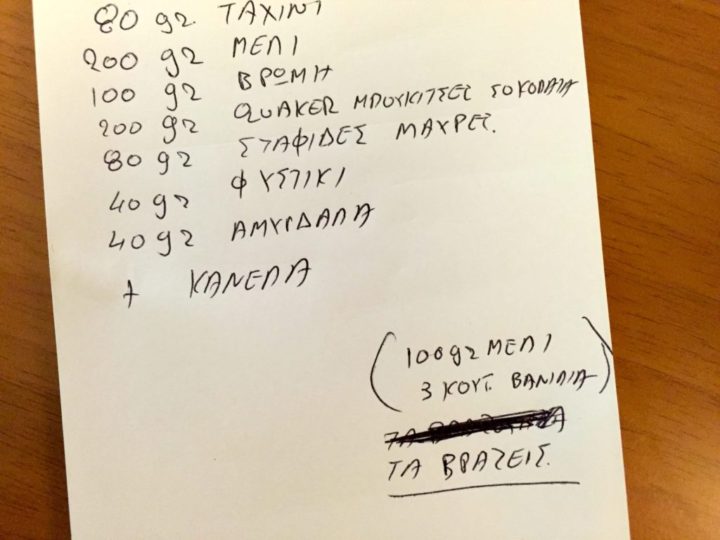 80 gr ΤΑΧΙΝΙ
200 gr ΜΕΛΙ
100 gr ΒΡΩΜΗ
200 gr QUAKER ΜΠΟΥΚΙΤΣΕΣ ΣΟΚΟΛΑΤΑ
80 gr ΣΤΑΦΙΔΕΣ ΜΑΥΡΕΣ.
40 gr ΦΥΣΤΙΚΙ
40 gr ΑΜΥΓΔΑΛΑ
+ ΚΑΝΕΛΑ
(100 gr ΜΕΛΙ
3 ΚΟΥΤ. ΒΑΝΙΛΙΑ)
ΤΑ ΒΡΑΖΕΙΣ.